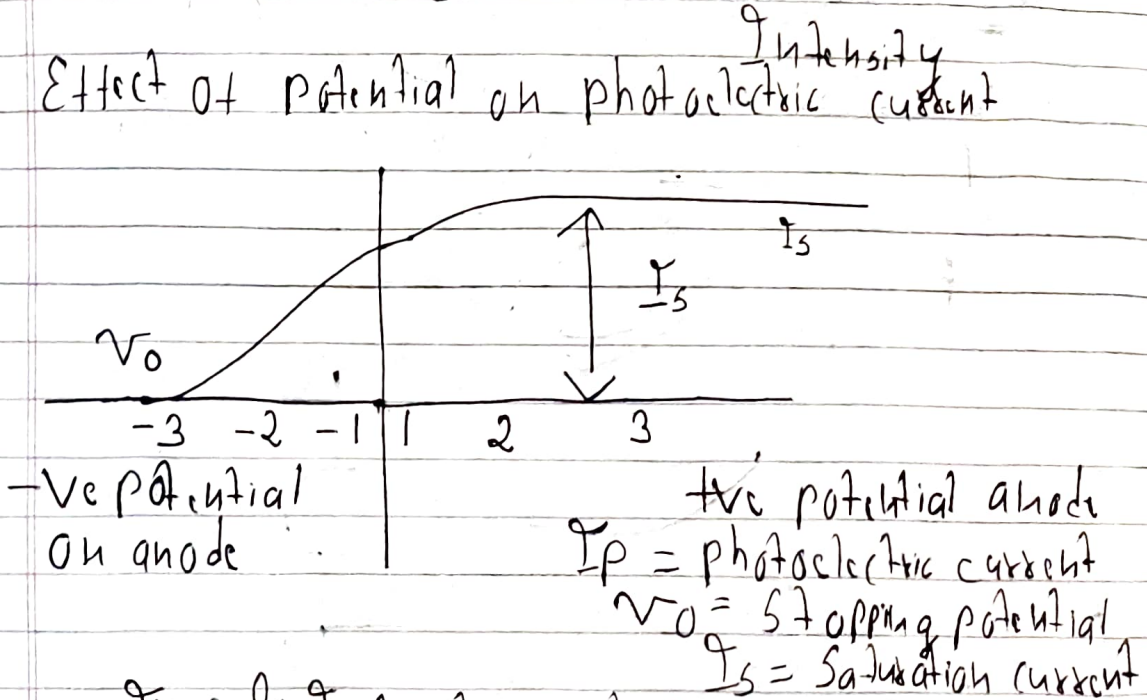 Intensity
Effect of potential on photoelectric current
Is
Is
V0
-3 -2 -1 1 2 3
-ve potential
on anode
+ve potential anode
Ip = photoelectric current
V0 = Stopping potential
Is = Saturation current